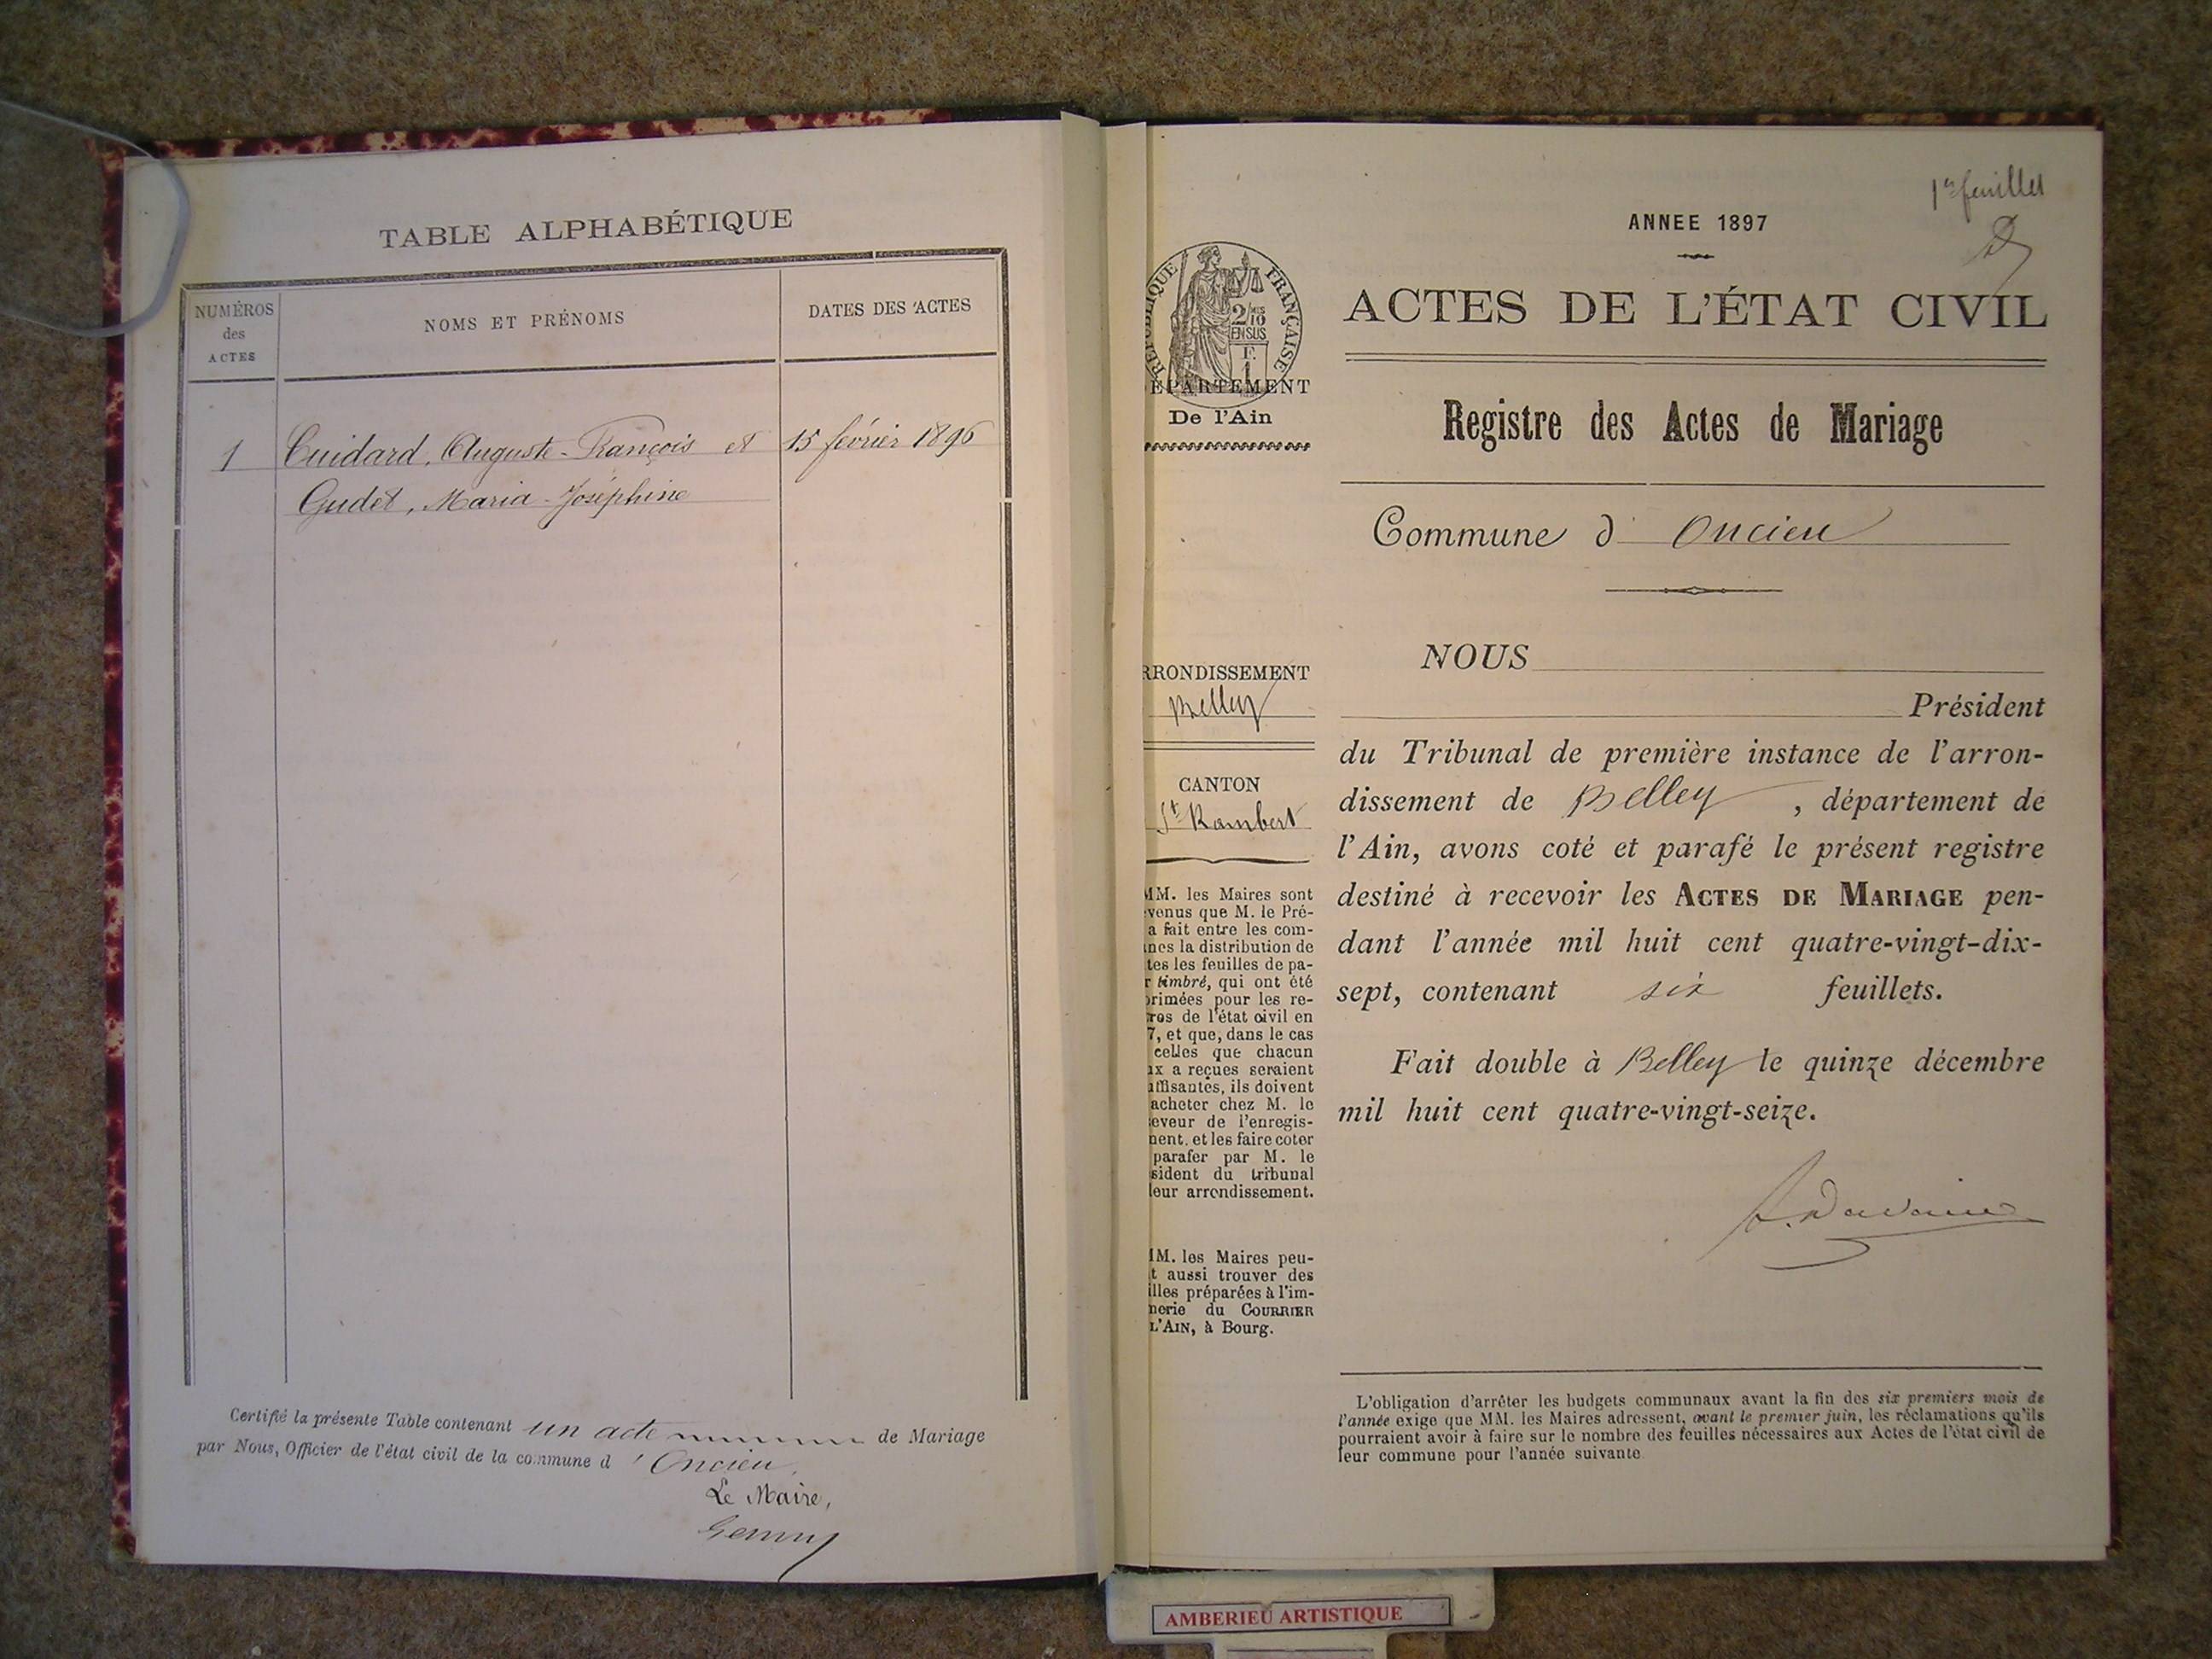 TABLE ALPHABÉTIQUE
NUMÉROS
des
ACTES
NOMS ET PRÉNOMS
DATES DES ACTES
1
Cuidard, Auguste-François et
15 février 1896
Gudet, Maria-Joséphine
Certifié la présente Table contenant un acte de Mariage
par Nous, Officier de l'état civil de la commune d'Oncieu,
Le Maire,
1er feuillet
ANNEE 1897
RÉPUBLIQUE FRANÇAISE
2/10
EN SUS
F.
1
ÉPARTEMENT
De l'Ain
RRONDISSEMENT
Belley
CANTON
St Rambert
MM. les Maires sont
venus que M. le Pré-
a fait entre les com-
nes la distribution de
tes les feuilles de pa-
r timbré, qui ont été
rimées pour les re-
res de l'état civil en
7, et que, dans le cas
celles que chacun
ux a reçues seraient
uffisantes, ils doivent
acheter chez M. le
eveur de l'enregis-
ment, et les faire coter
parafer par M. le
sident du tribunal
leur arrondissement.
MM. les Maires peu-
t aussi trouver des
illes préparées à l'im-
merie du COURRIER
L'AIN, à Bourg.
ACTES DE L'ÉTAT CIVIL
Registre des Actes de Mariage
Commune d' Oncieu
NOUS
Président
du Tribunal de première instance de l'arron-
dissement de Belley, département de
l'Ain, avons coté et parafé le présent registre
destiné à recevoir les ACTES DE MARIAGE pen-
dant l'année mil huit cent quatre-vingt-dix-
sept, contenant six feuillets.
Fait double à Belley le quinze décembre
mil huit cent quatre-vingt-seize.
L'obligation d'arrêter les budgets communaux avant la fin des six premiers mois de
l'année exige que MM. les Maires adressent, avant le premier juin, les réclamations qu'ils
pourraient avoir à faire sur le nombre des feuilles nécessaires aux Actes de l'état civil de
leur commune pour l'année suivante.
AMBERIEU ARTISTIQUE